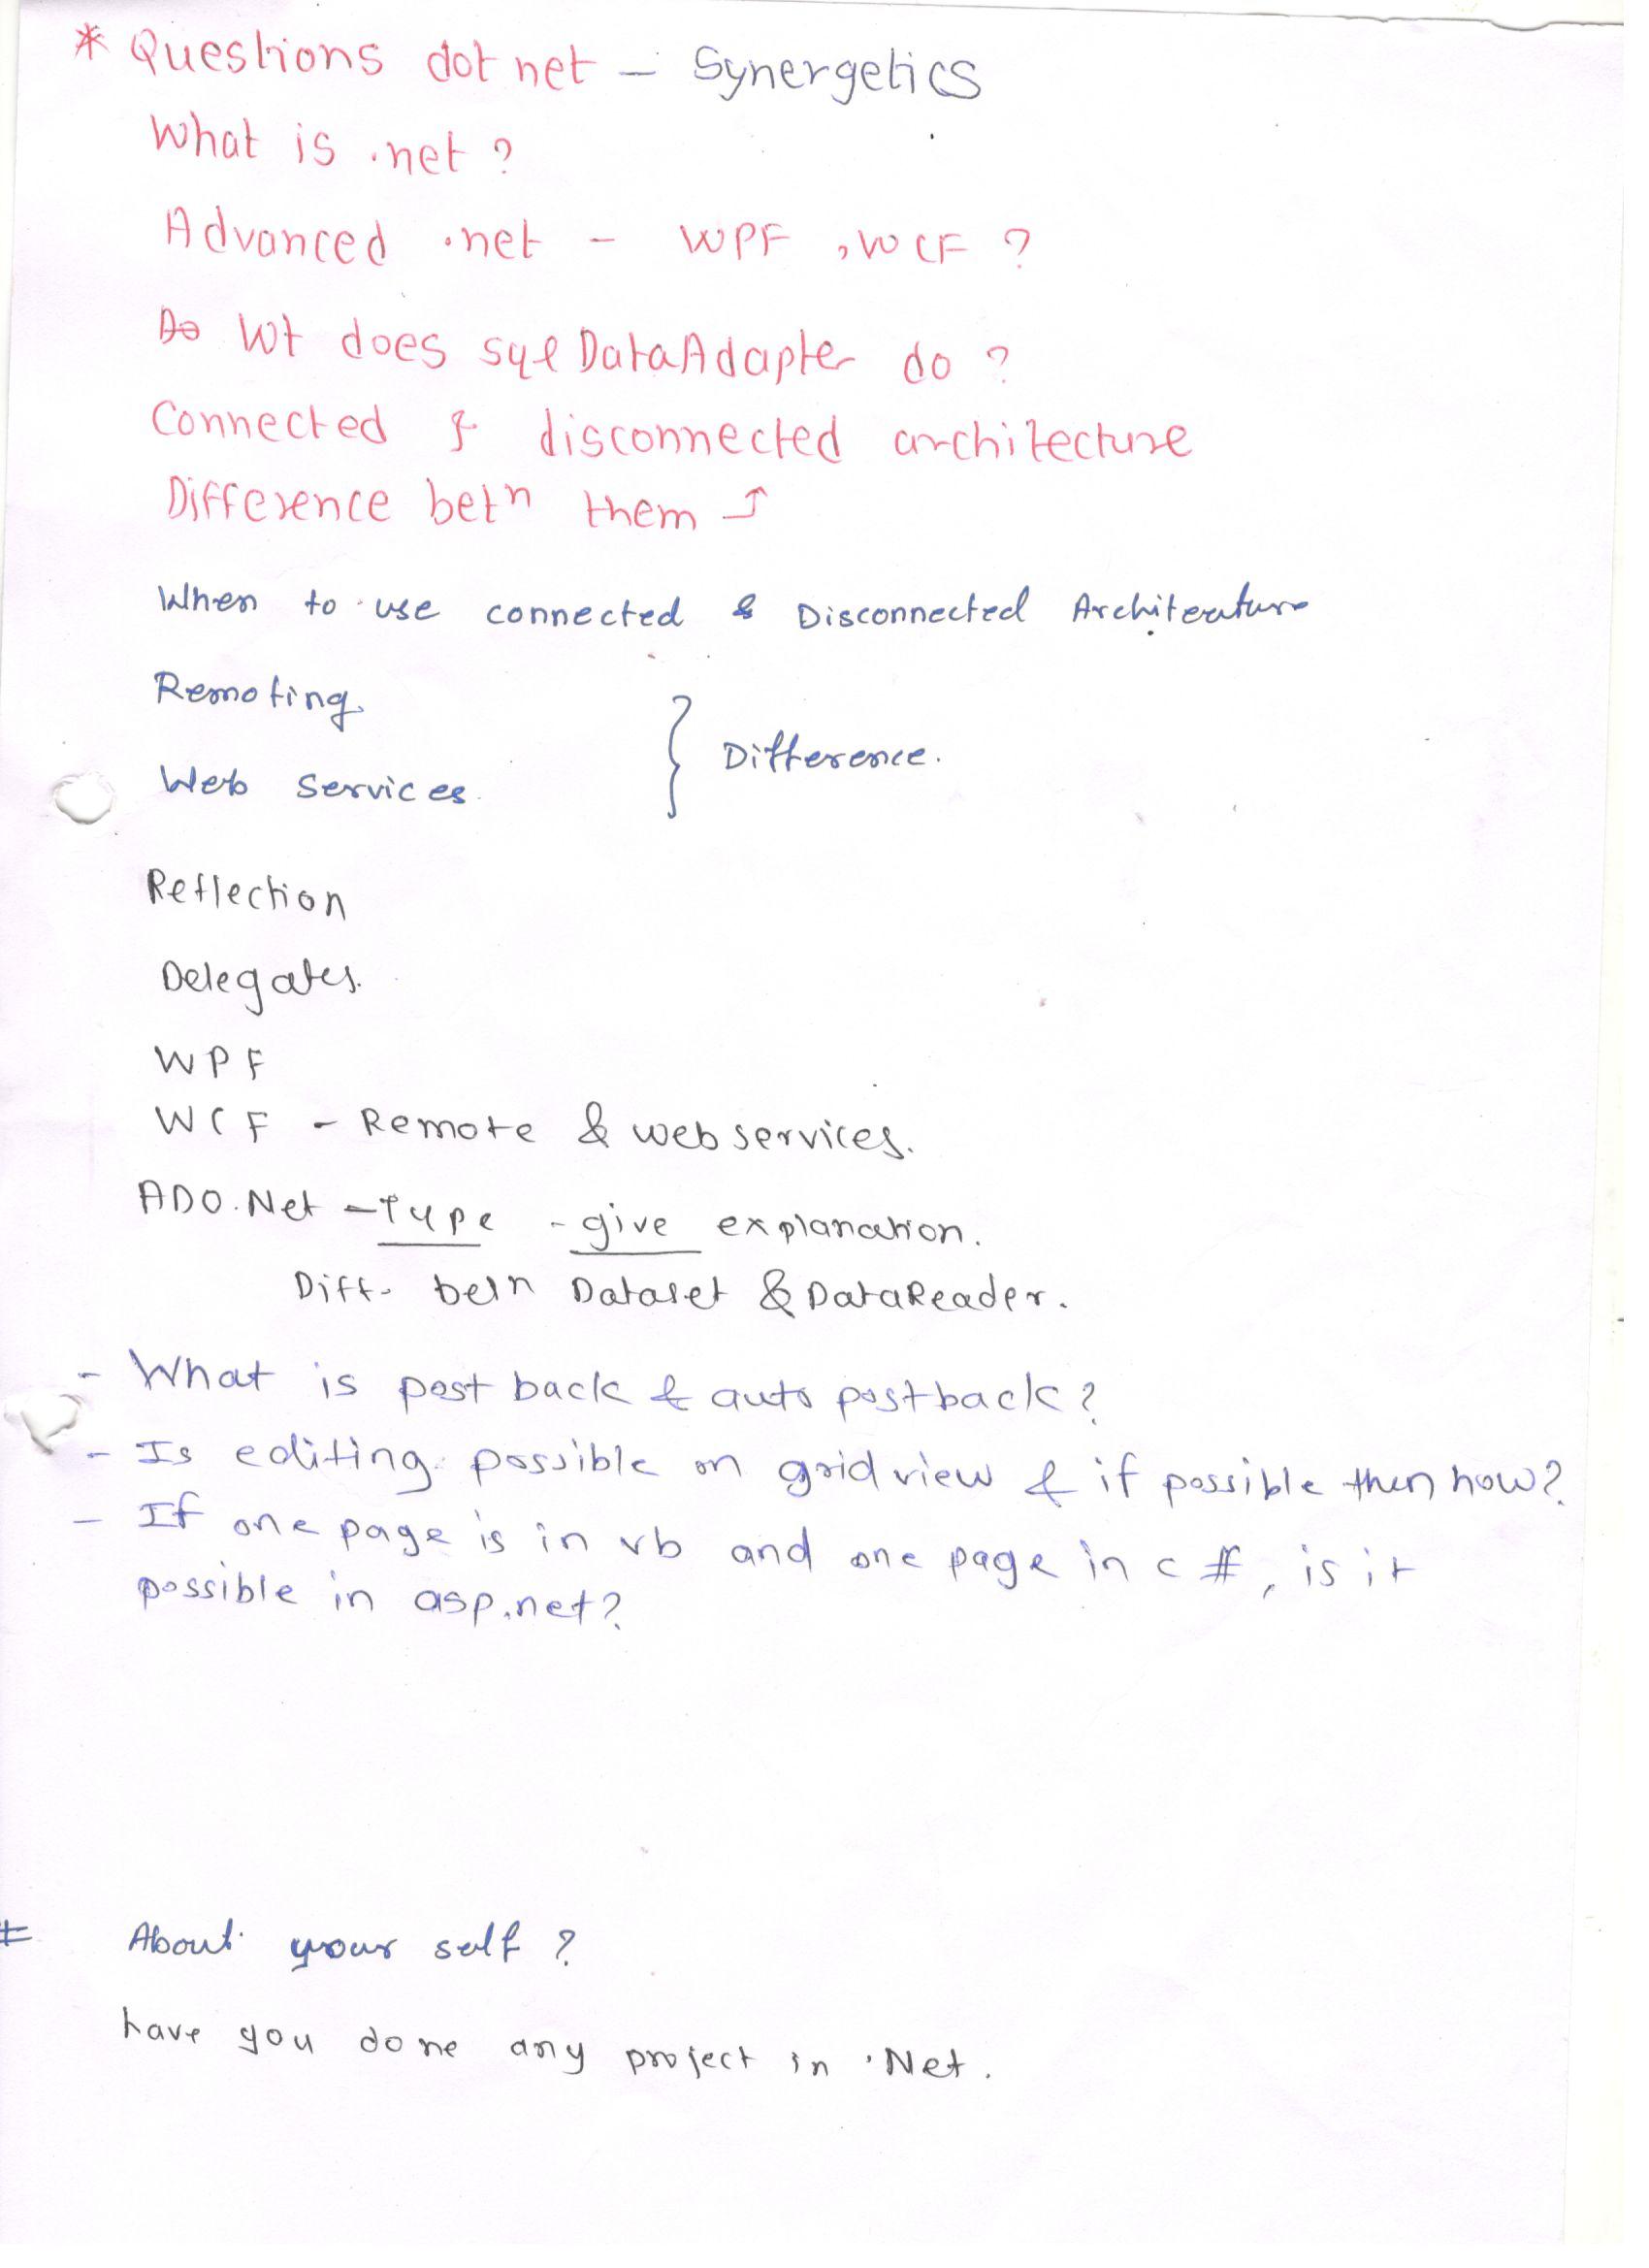 * Questions dot net - Synergetics
What is .net ?
Advanced .net - WPF , WCF ?
Do Wt does sql DataAdapter do ?
Connected & disconnected architecture
Difference betn them ↑
When to use connected & Disconnected Architecature
Remoting
} Difference.
Web Services.
Reflection
Delegates.
WPF
WCF - Remote & web services.
ADO.Net - Type - give explanation.
Diff. betn Dataset & DataReader.
- What is post back & auto postback ?
- Is editing possible on grid view & if possible then how?
- If one page is in vb and one page in c #, is it
possible in asp.net?
# About your self ?
have you done any project in .Net.